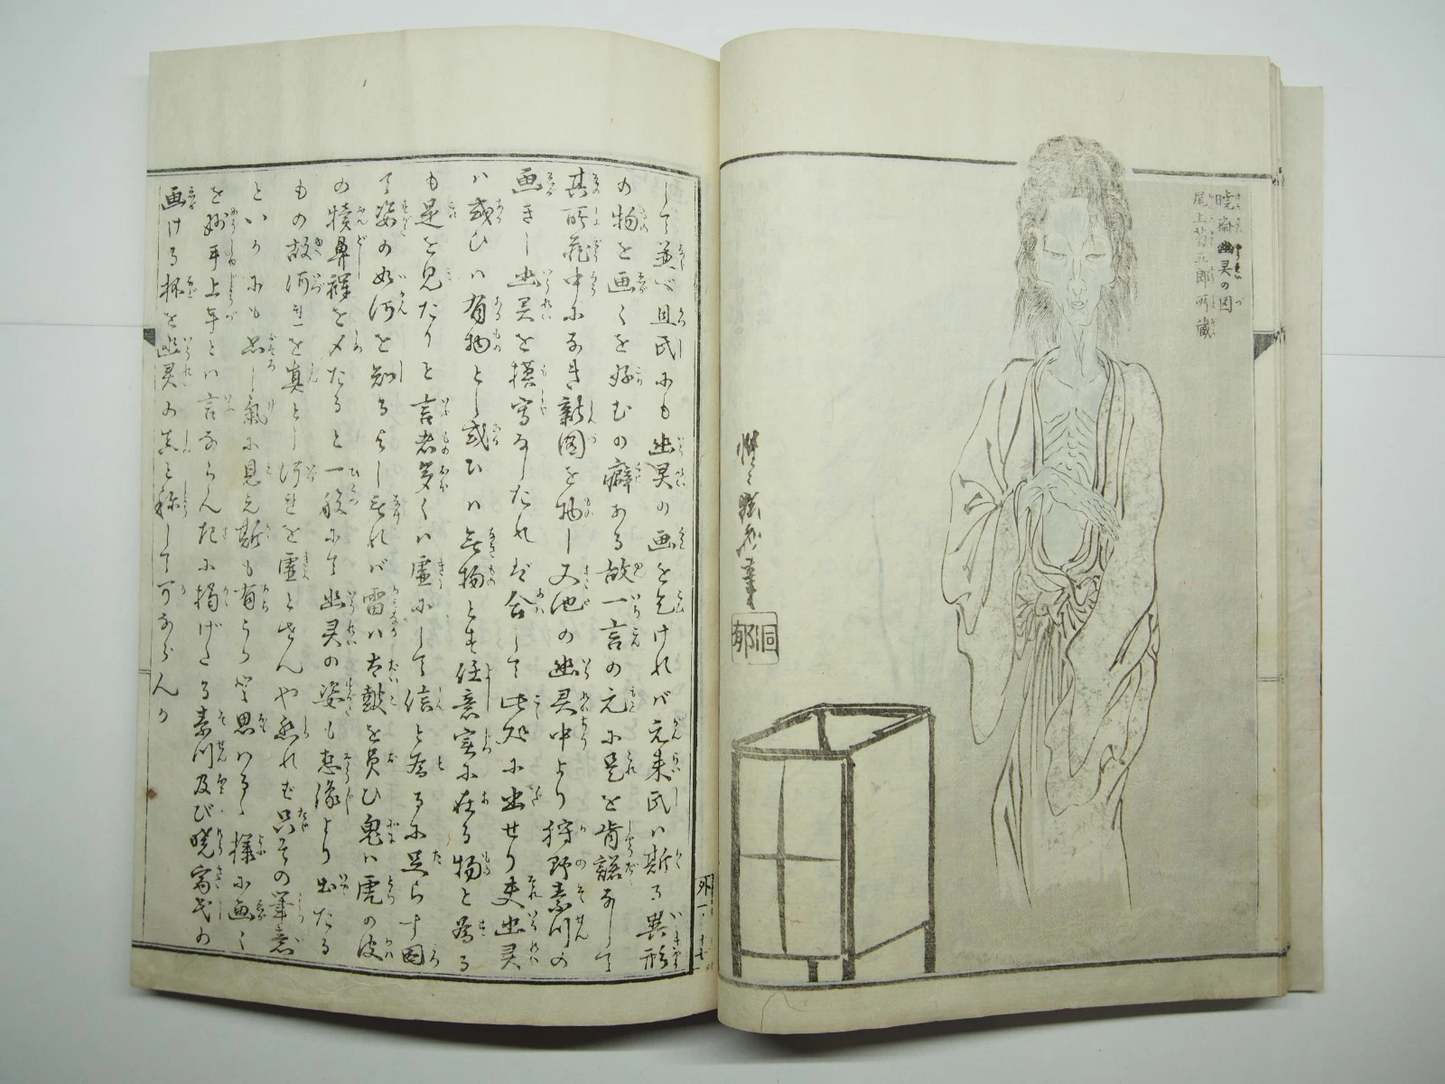 暁斎幽灵の図
尾上菊五郎所蔵
惺々暁斎筆
洞郁
して並べ且氏にも幽灵の画を乞けれバ元来氏ハ斯る異形
の物を画くを好むの癖ある故一言の元に是を肯諾なして
其所蔵中になき新図を物し又池の幽灵中より狩野素川の
画きし幽灵を模写なしたれば合して此処に出せり夫幽灵
ハ或ひハ有物とし或ひハ無物とす任意実に在る物と為る
も是を見たりと言者多くハ虚にして信と為るに足らず図
て姿の如何を知るよしなけれバ雷ハ太鼓を負ひ鬼ハ虎の皮
の犢鼻褌を〆たると一般にて幽灵の姿も想像より出たる
もの故何れを真とし何れを虚とせんや然れども只その筆意
といかにも恐し気に見え斯も有うらめと思ハるゝ様に画く
を妙手上手といハ言ならんたに掲げたる素川及び暁斎氏の
画ける抔を幽灵の真と称して可ならんか
外一